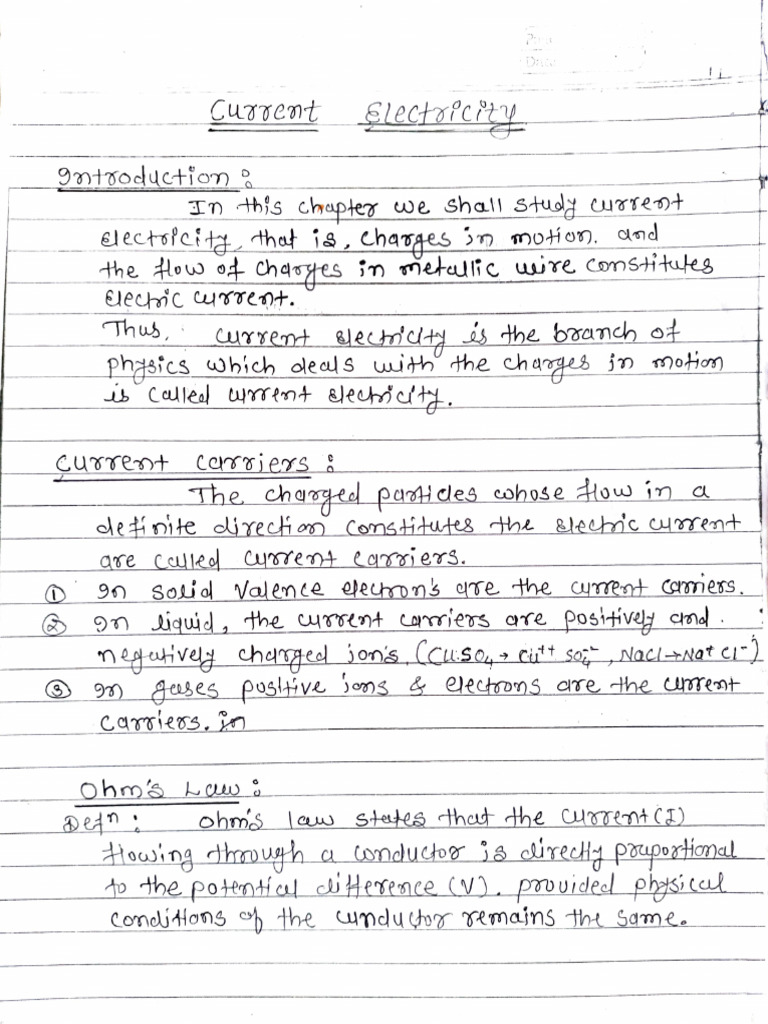 Page
Date
Current Electricity
Introduction :
In this chapter we shall study current
electricity, that is, charges in motion. and
the flow of charges in metallic wire constitutes
electric current.
Thus, current electricity is the branch of
physics which deals with the charges in motion
is called current electricity.
Current carriers :
The charged particles whose flow in a
definite direction constitutes the electric current
are called current carriers.
① In solid valence electron's are the current carriers.
② In liquid, the current carriers are positively and
negatively charged ion's. (CuSO₄ → Cu⁺⁺ SO₄⁻⁻, NaCl → Na⁺ Cl⁻)
③ In gases positive ions & electrons are the current
carriers. in
Ohm's Law :
Defⁿ : Ohm's law states that the current (I)
flowing through a conductor is directly praportional
to the potential difference (V). provided physical
conditions of the conductor remains the same.